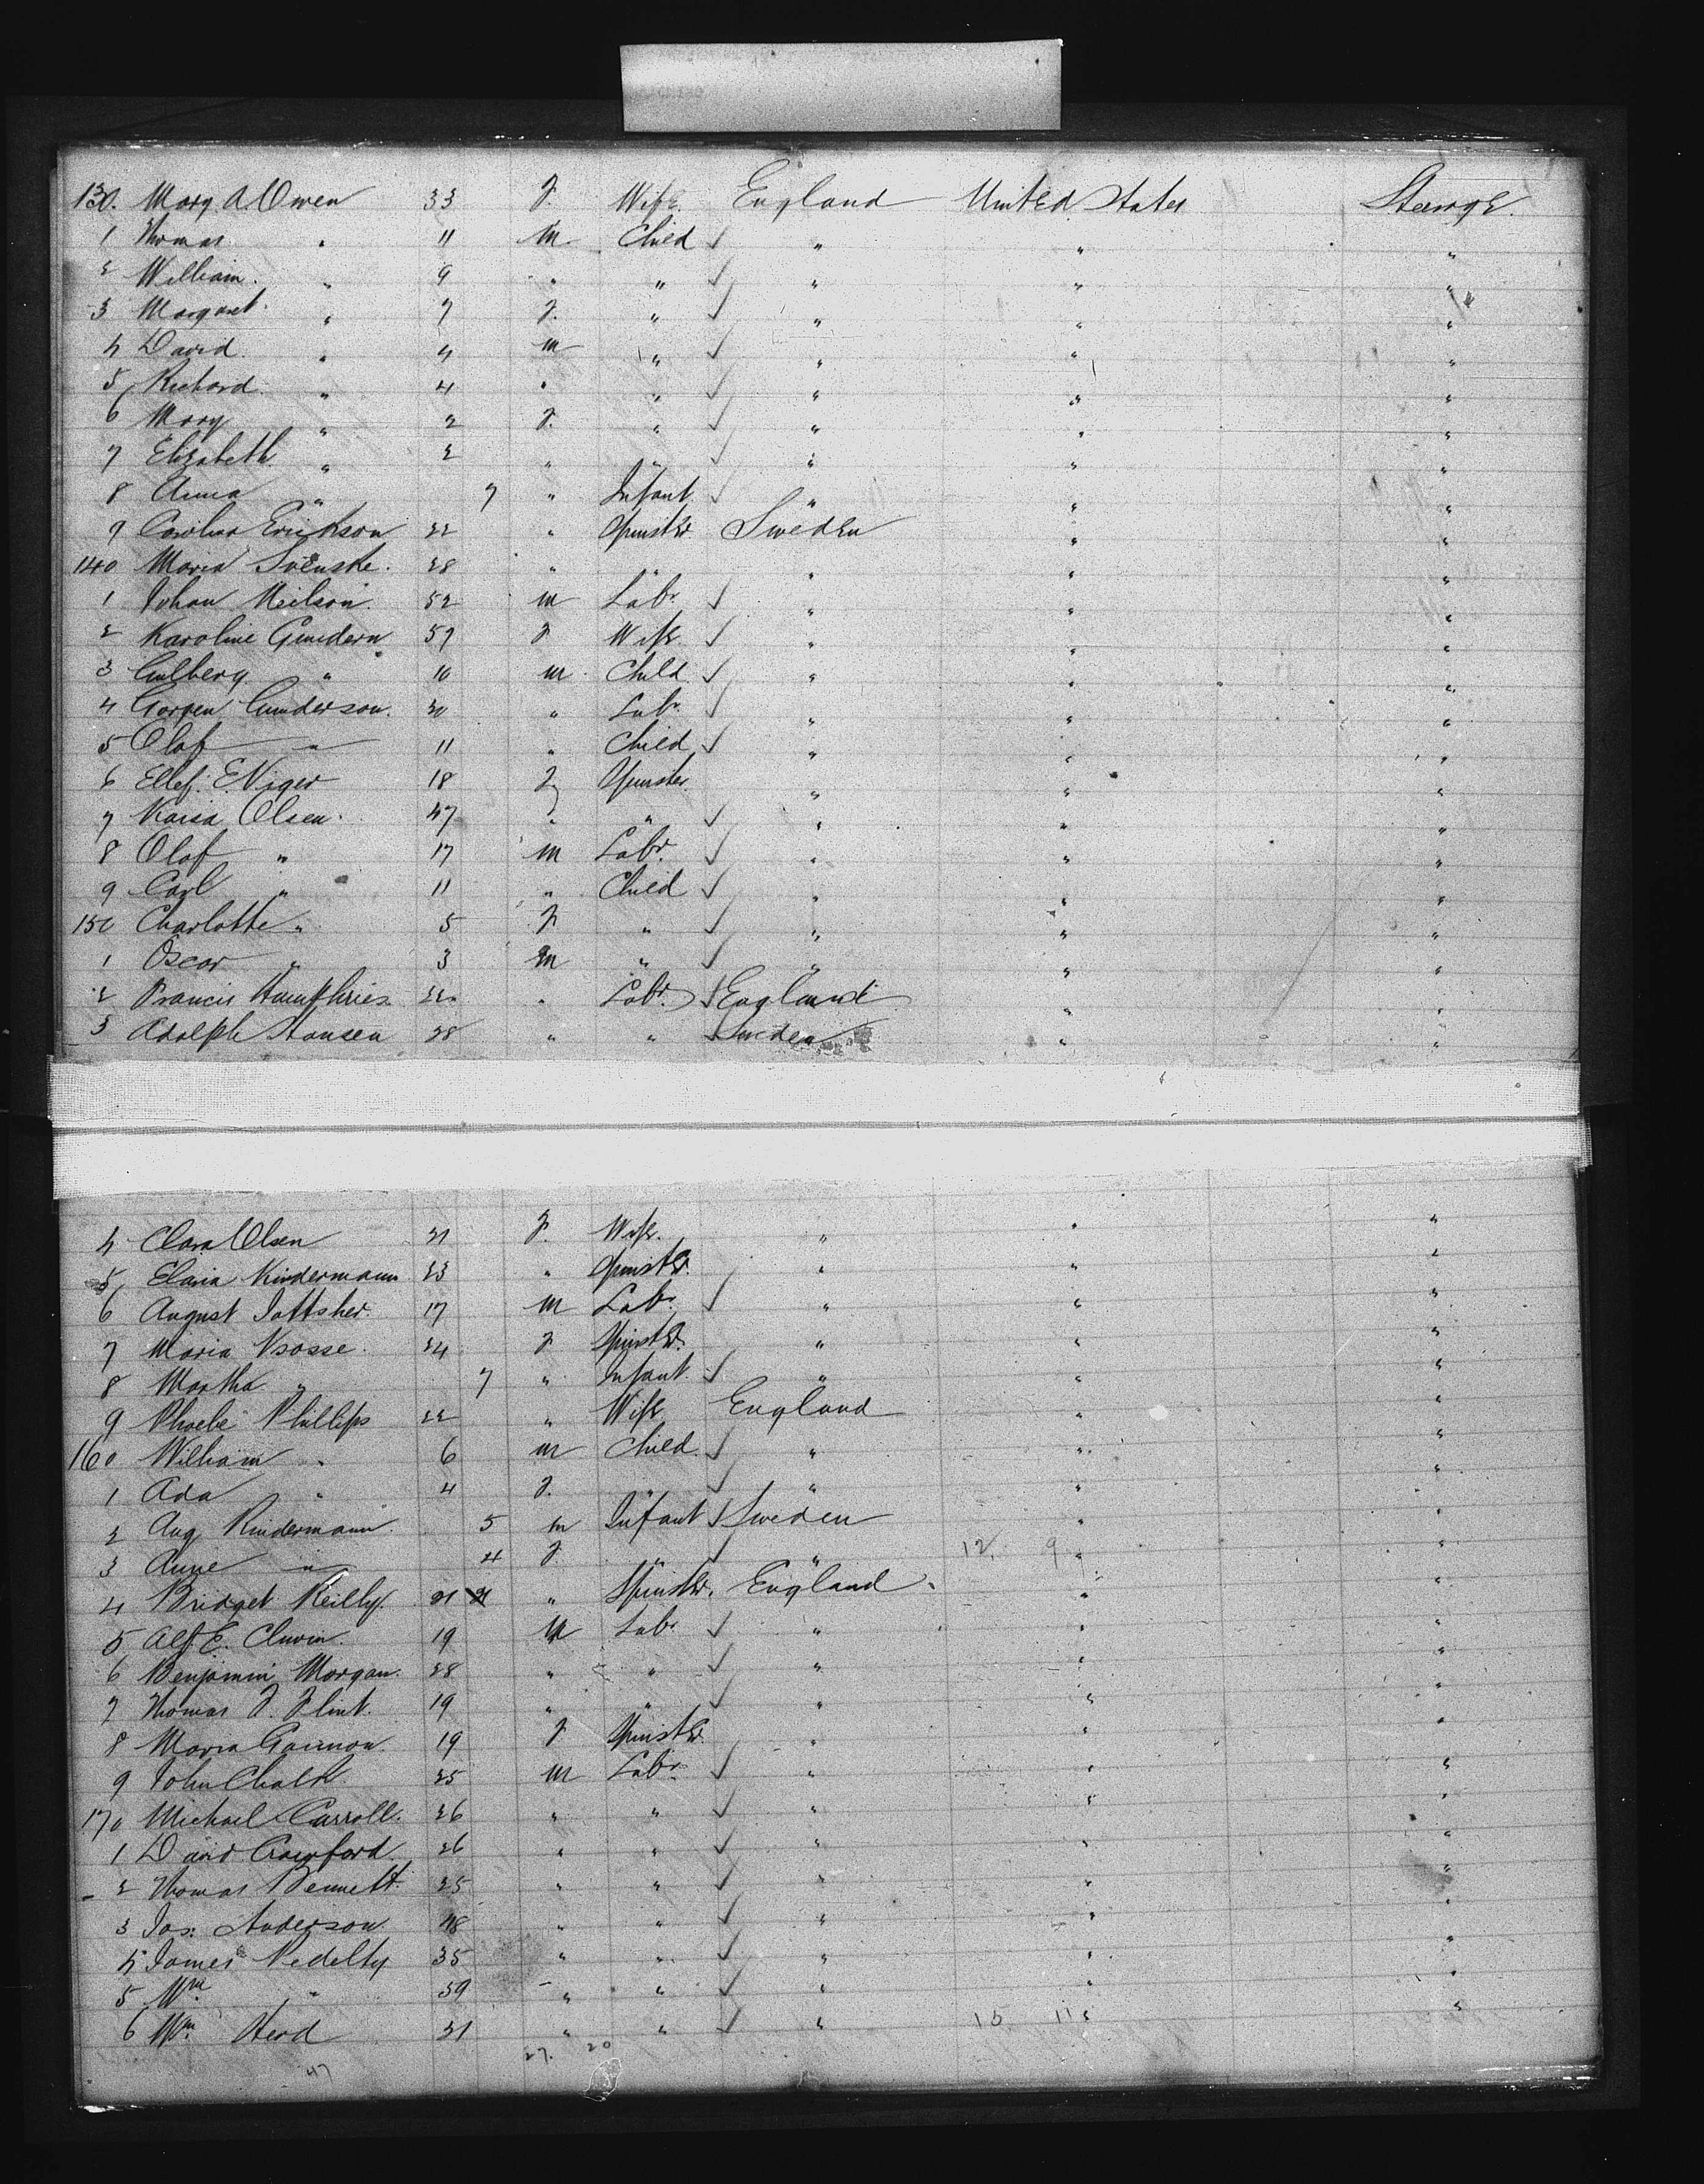 130. Mary A. Owen 33 F. Wife. England United States Steerage.
1 Thomas " 11 M. Child ✓ " " "
2 William. " 9 " " ✓ " " "
3 Margaret. " 7 F. " ✓ " " "
4 David. " 4 M " ✓ " " "
5 Richard. " 4 " " ✓ " " "
6 Mary " 2 F. " ✓ " " "
7 Elizabeth. " 2 " " ✓ " " "
8 Anna " 7 " Infant. ✓ " " "
9 Carolina Erickson 22 " Spinster Sweden " "
140 Maria Svenske. 28 " " " " "
1 Johan Neilson. 52 M Labr. ✓ " " "
2 Karoline Gundern 57 F Wife. ✓ " " "
3 Gulberg " 10 M. Child. ✓ " " "
4 Gorgen Gunderson. 20 " Labr. ✓ " " "
5 Olaf " 11 " Child ✓ " " "
6 Ellef. E. Viger 18 F Spinster. " " "
7 Kaisa Olsen. 47 " " ✓ " " "
8 Olaf " 17 M Labr. ✓ " " "
9 Carl " 11 " Child ✓ " " "
150 Charlotte " 5 F " ✓ " " "
1 Oscar " 3 M " ✓ " " "
2 Francis Humphries. 22. " Labr. ✓ England " "
3 Adolph Hansen 28 " " ✓ Sweden " "
4 Clara Olsen 21 F. Wife. " " "
5 Elaria Kindermann 23 " Spinster. " " "
6 August Jattsher. 17 M Labr. ✓ " " "
7 Maria Vsosse. 24 F Spinster. " " "
8 Martha " 7 " Infant. ✓ " " "
9 Phoebe Phillips 22 " Wife England " "
160 William " 6 M Child. ✓ " " "
1 Ada " 4 F. " ✓ " " "
2 Aug Kindermann. 5 M Infant ✓ Sweden " "
3 Anne " 4 F. " ✓ " 12. 9 " "
4 Bridget Reilly. 21 " Spinster. England. " "
5 Alf. E. Cluvin. 19 M Labr ✓ " " "
6 Benjamin Morgan. 28 " " ✓ " " "
7 Thomas F. Flint. 19 " " ✓ " " "
8 Maria Gannon. 19 F Spinster. " " "
9 John Chalk. 25 M Labr. ✓ " " "
170 Michael Carroll. 26 " " ✓ " " "
1 David Crawford. 26 " " ✓ " " "
2 Thomas Bennett. 25 " " ✓ " " "
3 Jas: Anderson. 48 " " ✓ " " "
4 James Pedelty 35 " " ✓ " " "
5 Wm. " 39 " " ✓ " " "
6 Wm. Herd 31 " " ✓ " 15 11 " "
47 27. 20